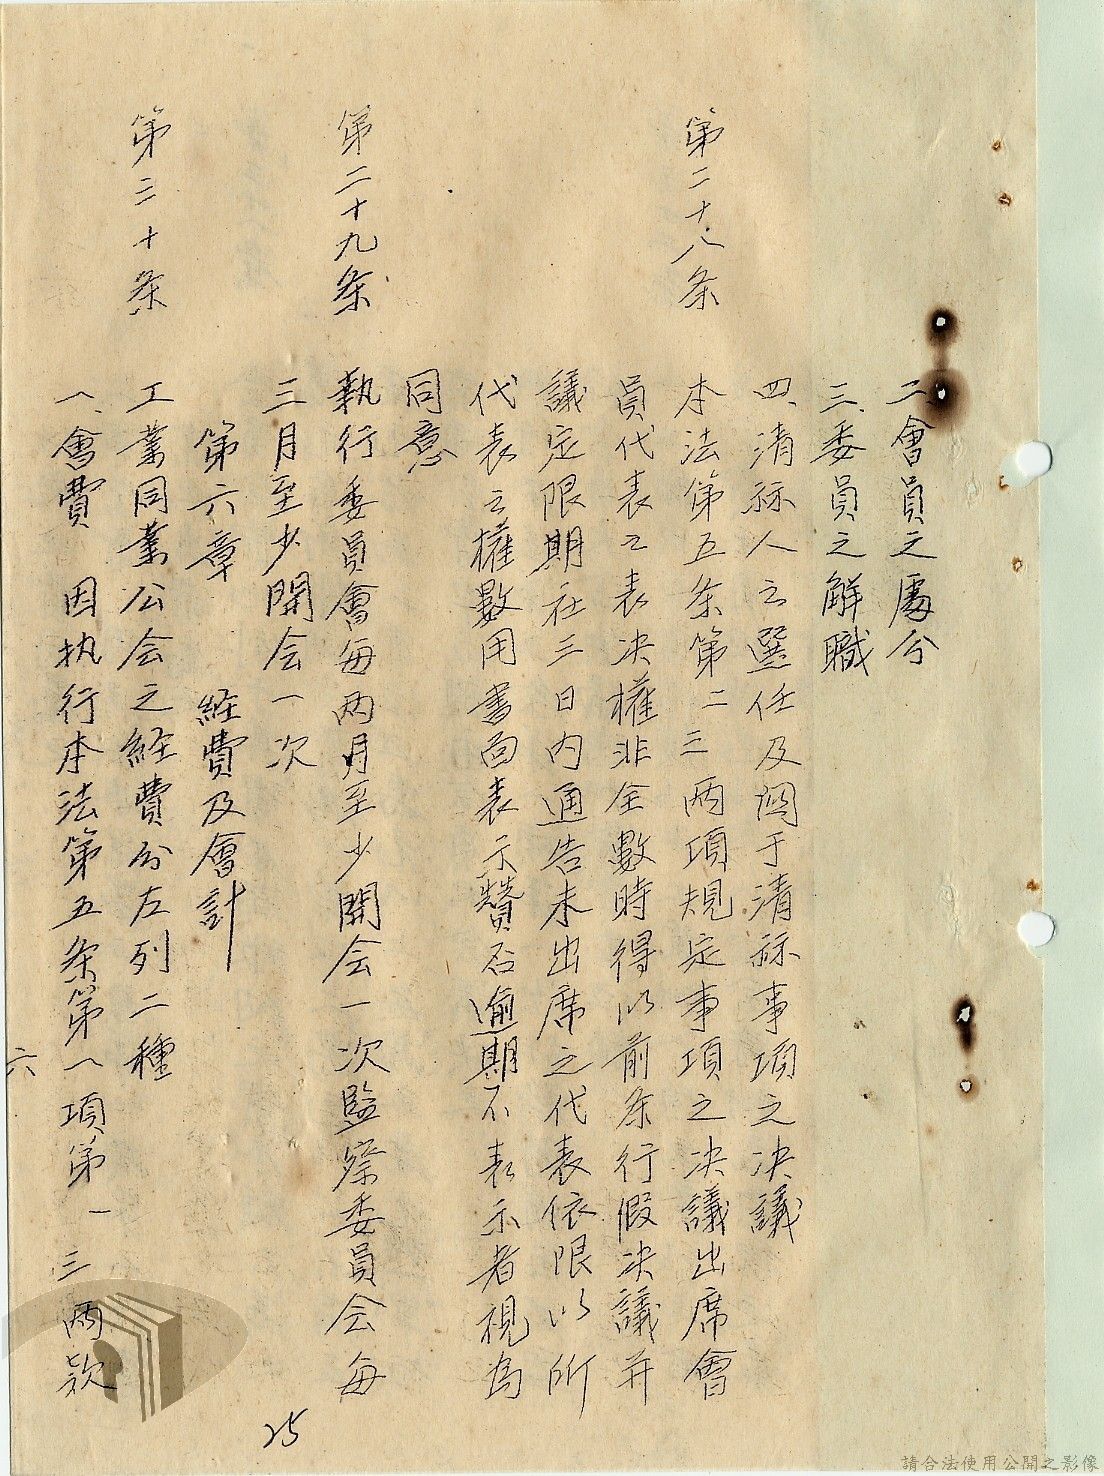 二、會員之處分
三、委員之解職
四、清祘人之選任及関于清祘事項之决議
第二十八条 本法第五条第二三两項規定事項之决議出席會
員代表之表决權非全數時得以前条行假决議并
議定限期在三日内通告未出席之代表依限以所
代表之權數用書面表示贊否逾期不表示者視為
同意
第二十九条 執行委員會每两月至少開会一次監察委員会每
三月至少開会一次
第六章 経費及會計
第三十条 工業同業公会之経費分左列二種
一、會費 因执行本法第五条第一項第一三两款
六
25
請合法使用公開之影像